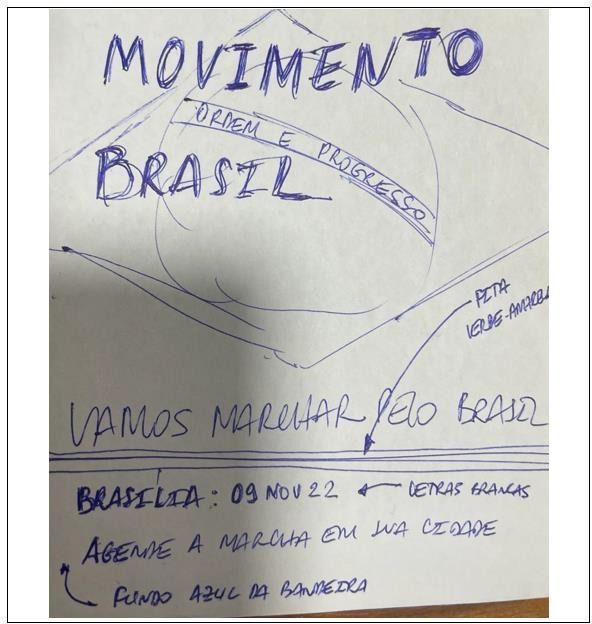 MOVIMENTO
ORDEM E PROGRESSO
BRASIL
FITA
VERDE-AMAREL
VAMOS MARCHAR PELO BRASIL
BRASÍLIA: 09 NOV 22
LETRAS BRANCAS
AGENDE A MARCHA EM SUA CIDADE
FUNDO AZUL DA BANDEIRA